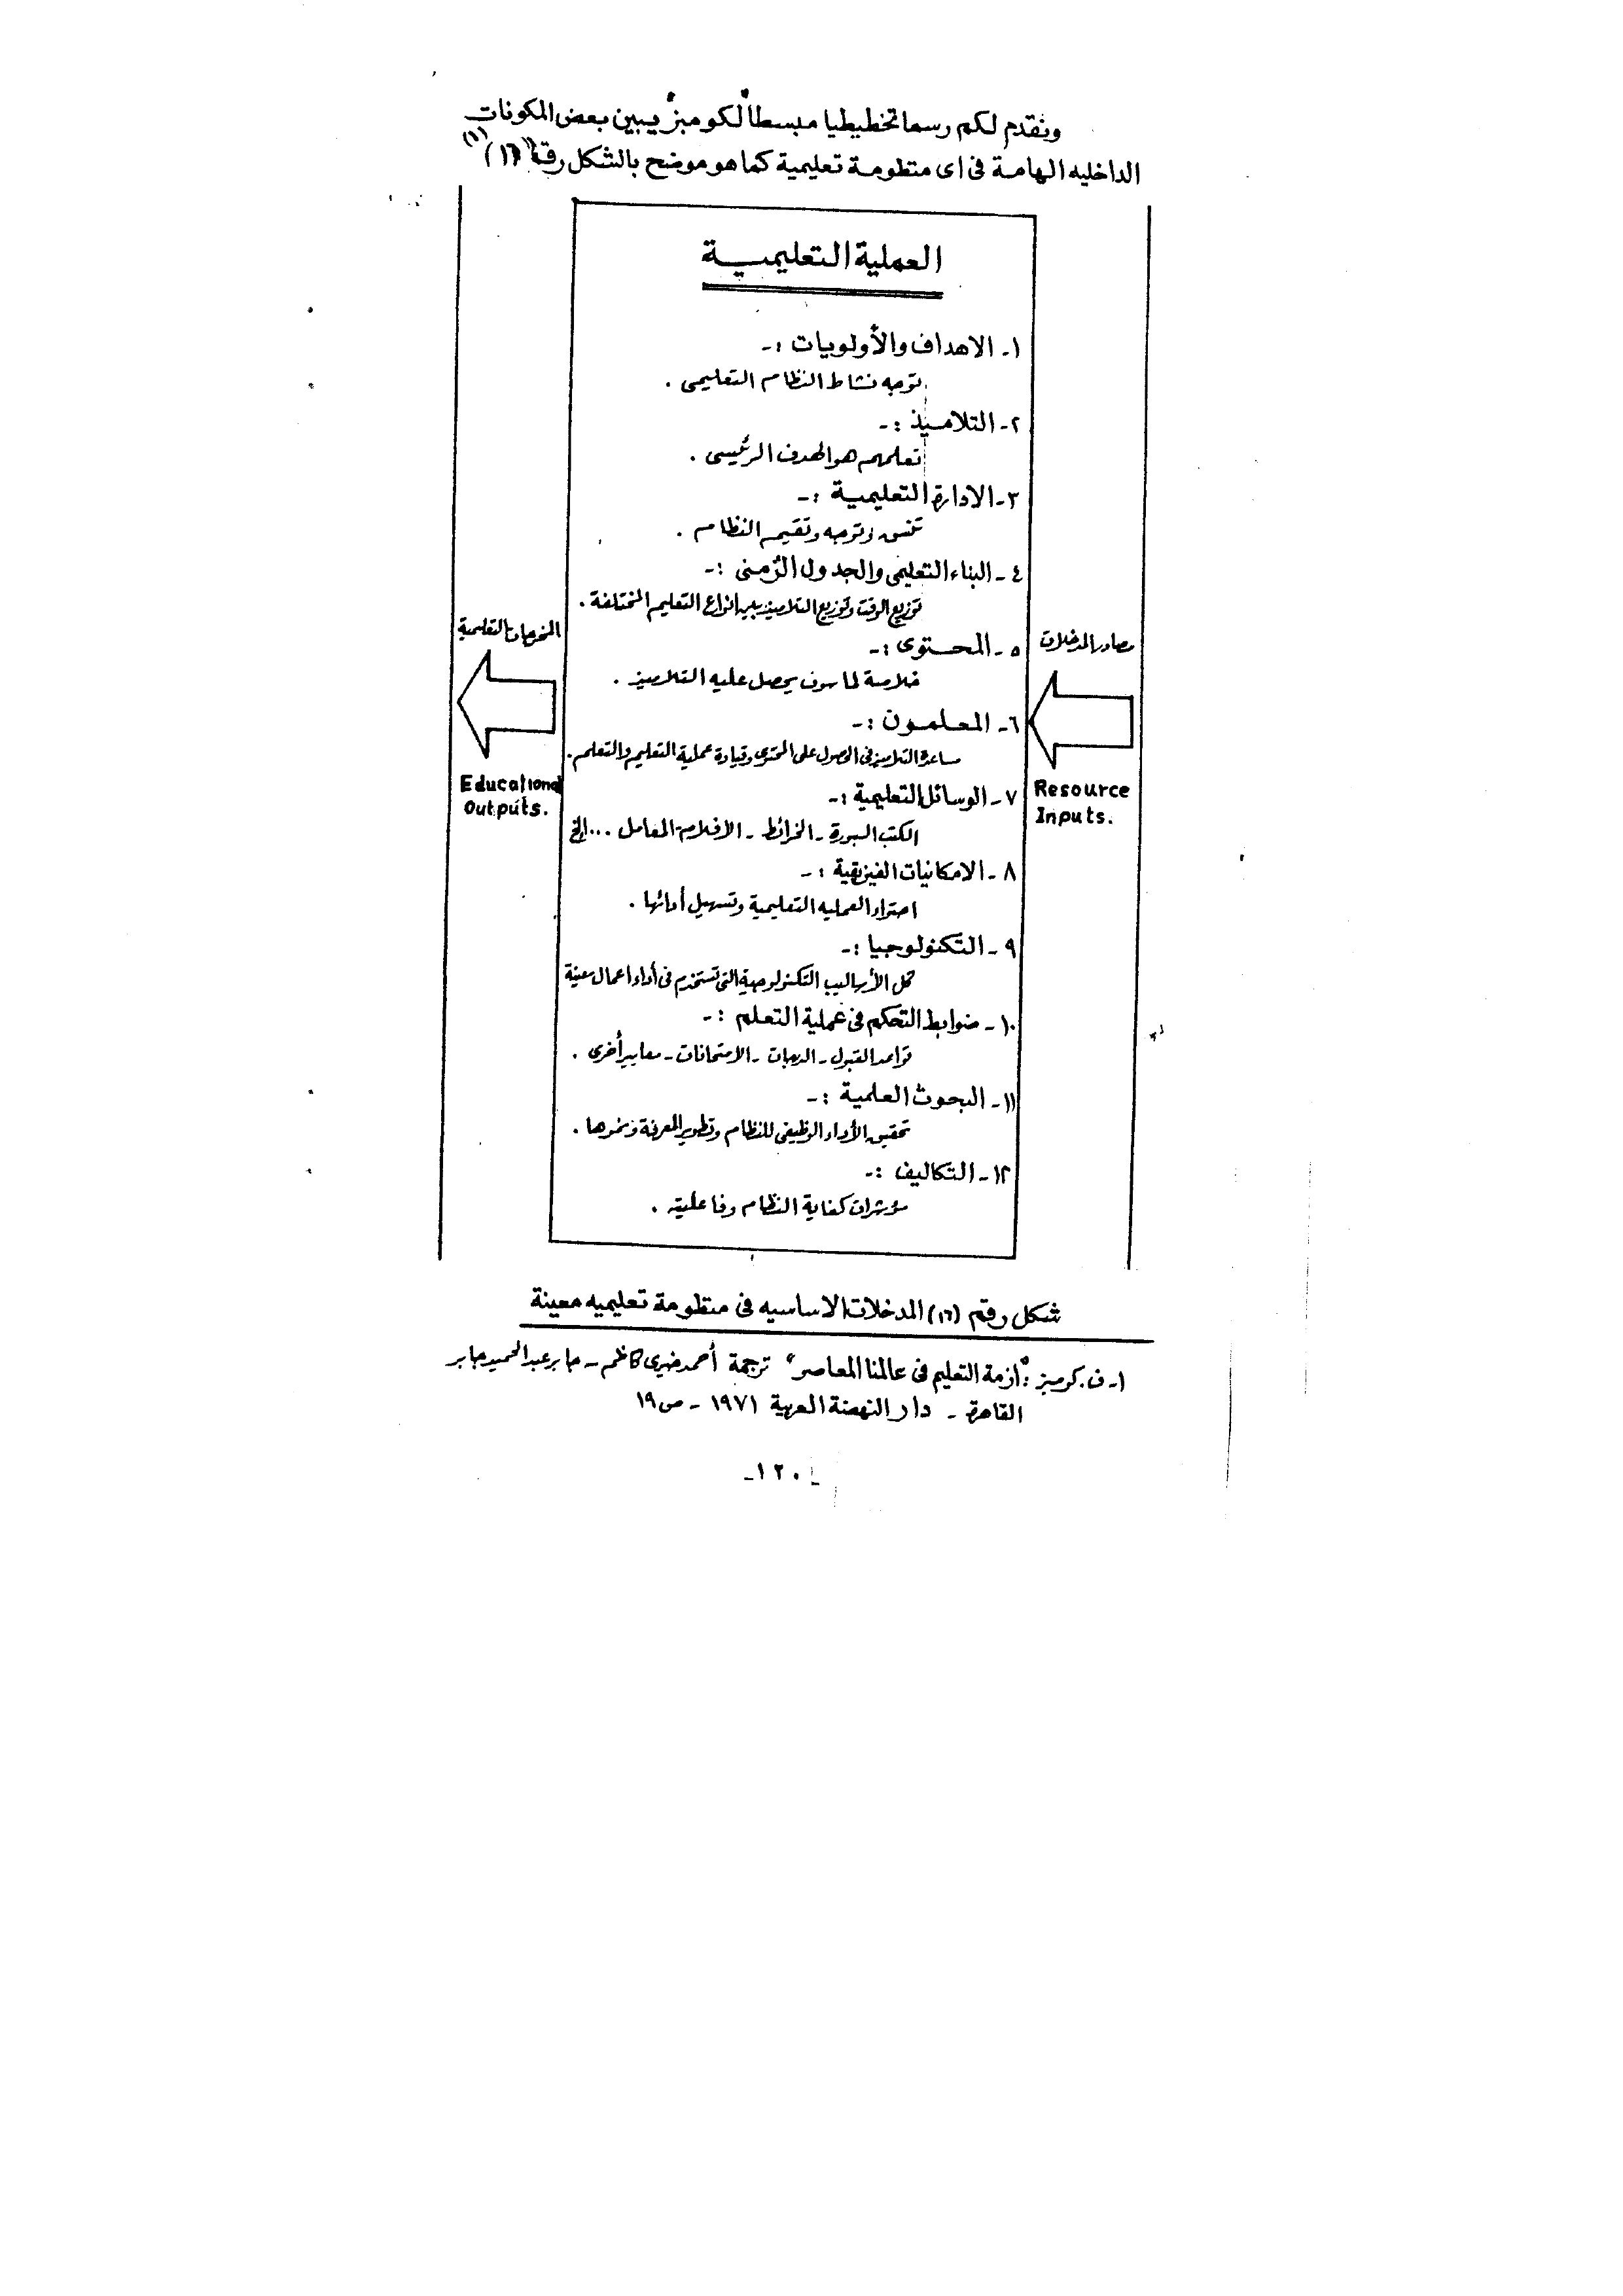 ونقدم لكم رسما تخطيطيا مبسطا "لكومبز" يبين بعض المكونات
الداخليه الهامة فى اى منظومة تعليمية كما هو موضح بالشكل رقم (١٦) (١)
العملية التعليمية
١ـ الاهداف والأولويات :ـ
توجه نشاط النظام التعليمى .
٢ـ التلاميذ :ـ
تعلمهم هو الهدف الرئيسى .
٣ـ الادارة التعليمية :ـ
تنسق وتوجه وتقيم النظام .
٤ـ البناء التعليمى والجدول الزمنى :ـ
توزيع الوقت وتوزيع التلاميذ بين انواع التعليم المختلفة .
٥ـ المحتوى :ـ
خلاصة لما سوف يحصل عليه التلاميذ .
٦ـ المعلمون :ـ
مساعدة التلاميذ فى الحصول على المحتوى وقيادة عملية التعليم والتعلم .
٧ـ الوسائل التعليمية :ـ
الكتب السبورة ـ الخرائط ـ الأفلام المعامل ... إلخ
٨ـ الامكانيات الفيزيقية :ـ
احتواء العمليه التعليمية وتسهيل أدائها .
٩ـ التكنولوجيا :ـ
كل الأساليب التكنولوجية التى تستخدم فى أداء اعمال معينة
١٠ـ ضوابط التحكم فى عملية التعلم :ـ
قواعد القبول ـ الدرجات ـ الامتحانات ـ معايير أخرى .
١١ـ البحوث العلمية :ـ
تحقيق الأداء الوظيفى للنظام وتطوير المعرفة ونموها .
١٢ـ التكاليف :ـ
مؤشرات كفاية النظام وفاعليته .
مصادر المدخلات
Resource
Inputs.
المخرجات التعليمية
Educational
Outputs.
شكل رقم (١٦) المدخلات الاساسيه فى منظومة تعليميه معينة
١ـ ف. كومبز : "أزمة التعليم فى عالمنا المعاصر" ترجمة أحمد خيرى كاظم ـ جابر عبد الحميد جابر
القاهرة ـ دار النهضة العربية ١٩٧١ ـ ص ١٩
ـ ١٢٠ ـ